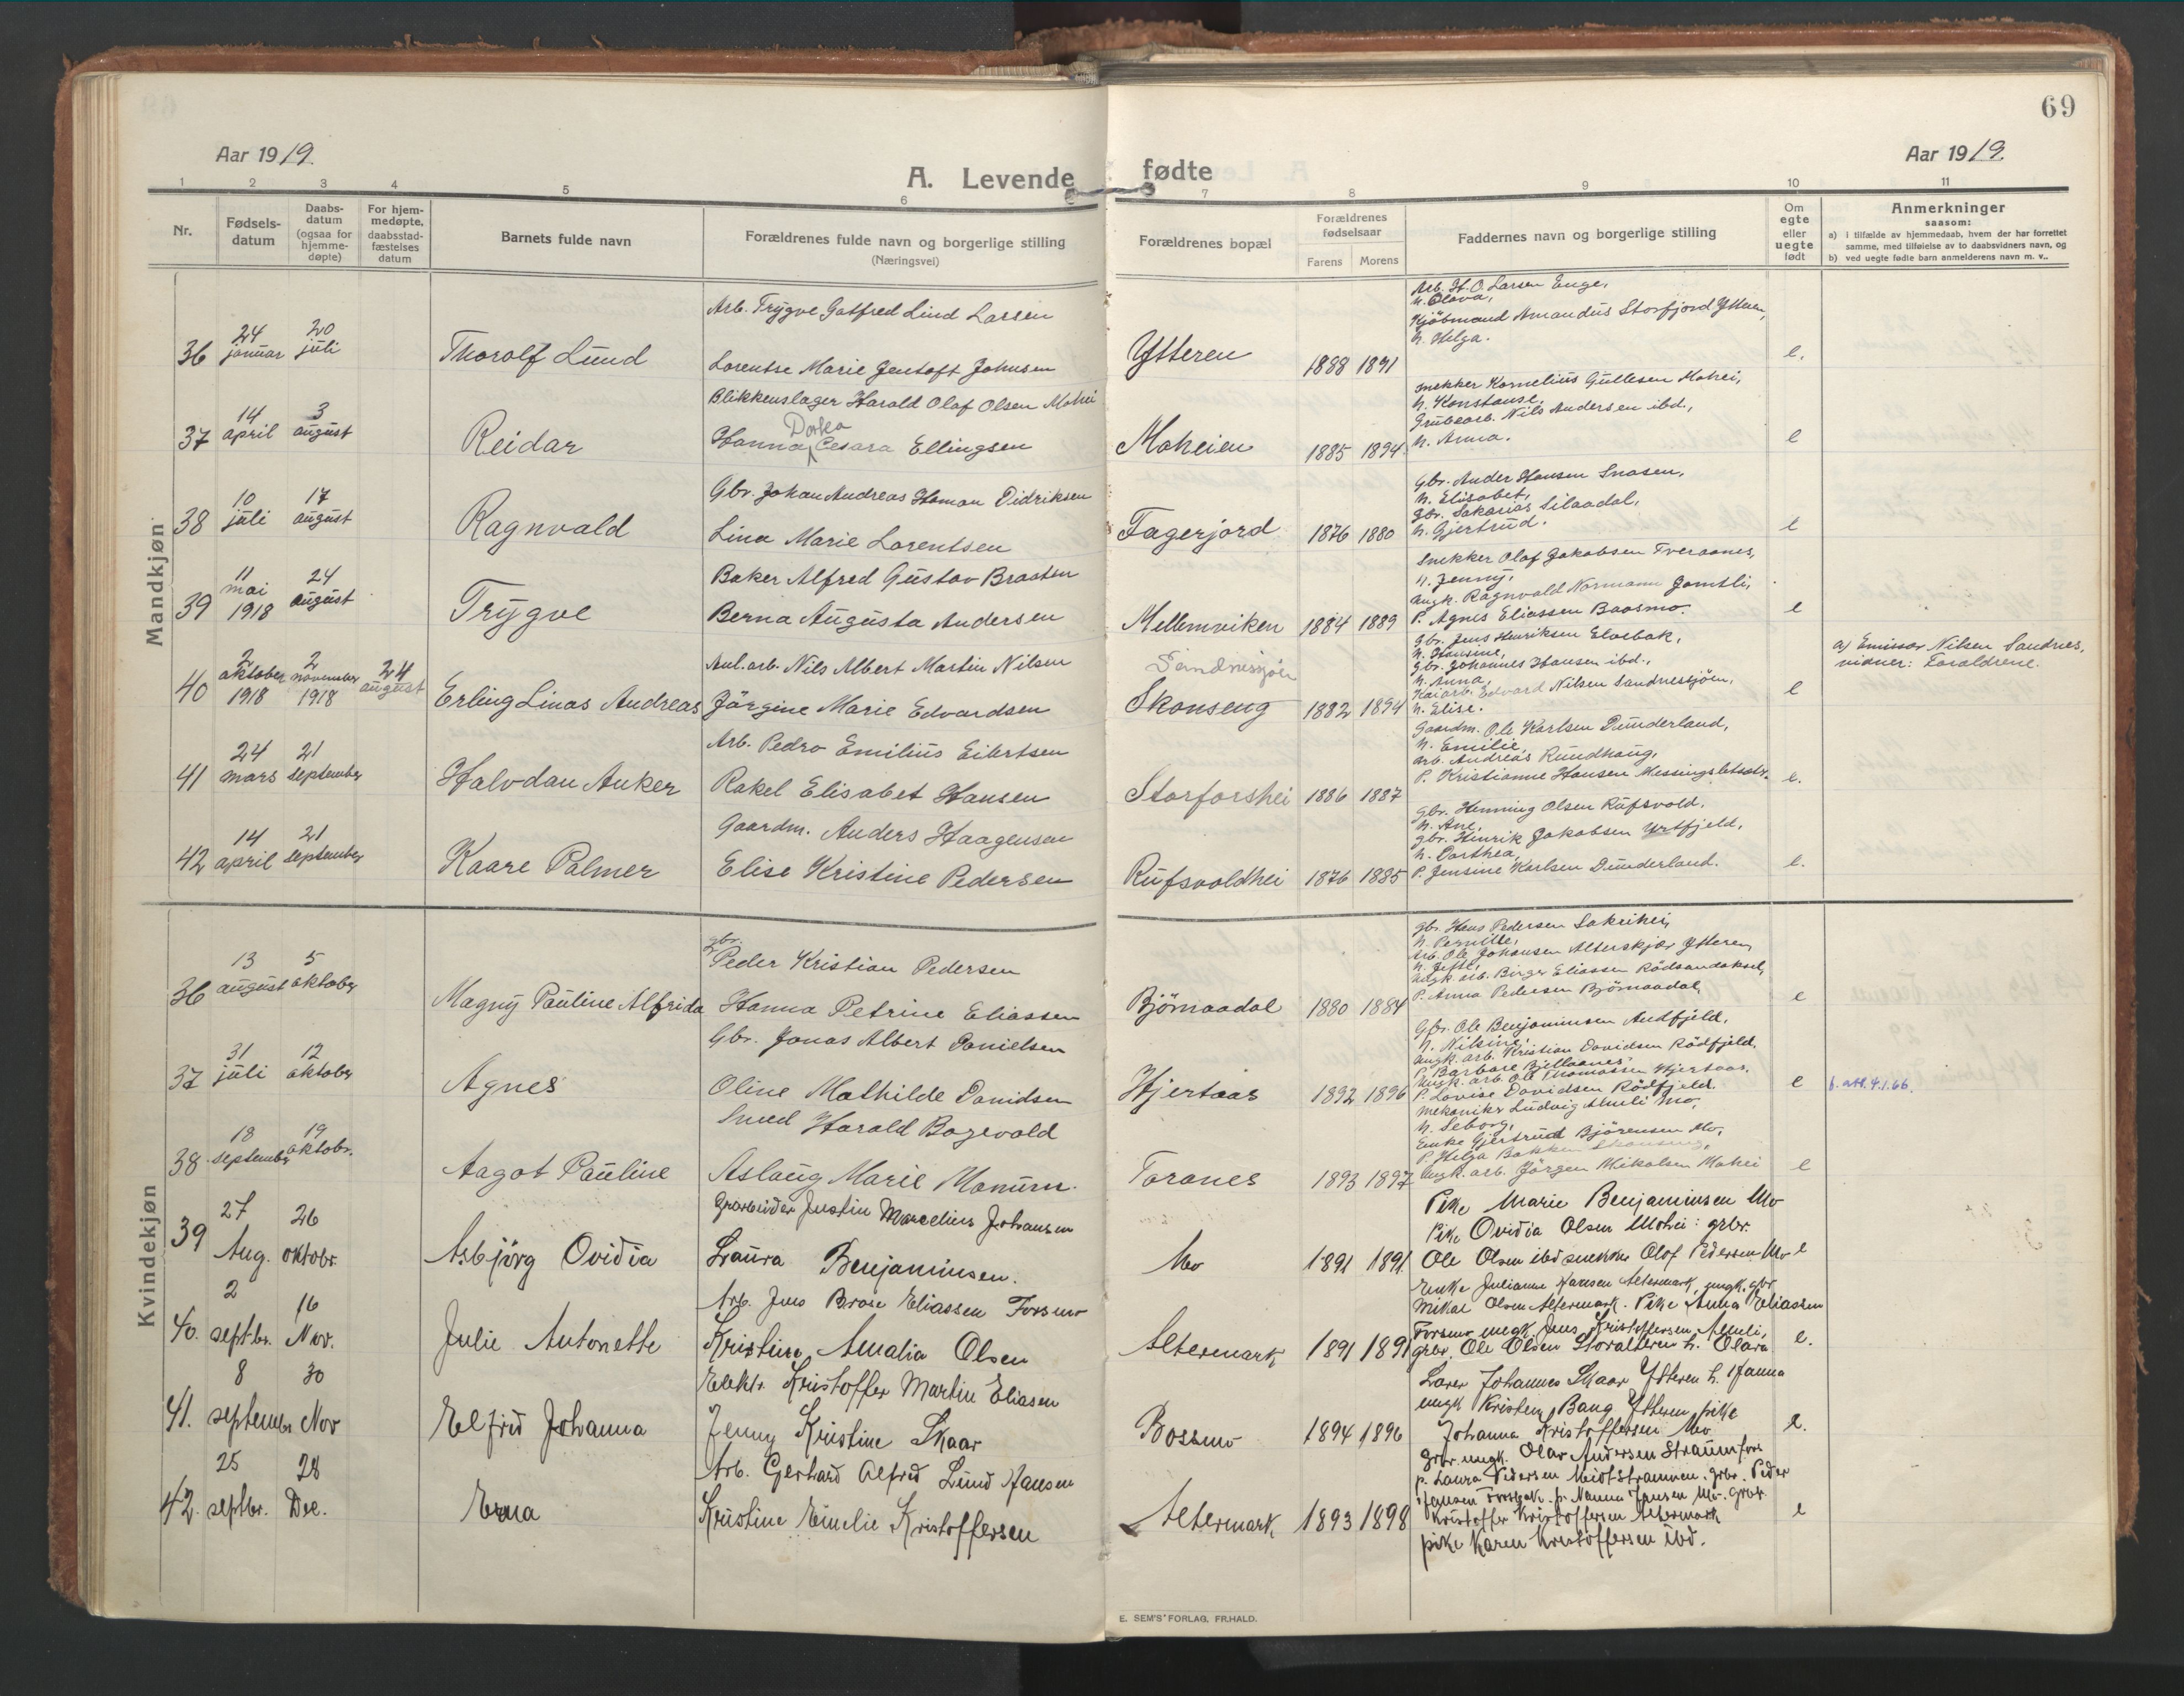 69
Aar 1919.
A. Levende fødte
Aar 1919.
1 2 3 4 5 6 7 8 9 10 11
Nr.
Fødsels-
datum
Daabs-
datum
(ogsaa for
hjemme-
døpte)
For hjem-
medøpte,
daabsstad-
fæstelses
datum
Barnets fulde navn
Forældrenes fulde navn og borgerlige stilling
(Næringsvei)
Forældrenes bopæl
Forældrenes
fødselsaar
Farens Morens
Faddernes navn og borgerlige stilling
Om
egte
eller
uegte
født
Anmerkninger
saasom:
a) i tilfælde av hjemmedaab, hvem der har forrettet
samme, med tilføielse av to daabsvidners navn, og
b) ved uegte fødte barn anmelderens navn m. v..
Mandkjøn
36 24 januar 20 juli
Thorolf Lund
Arb. Trygve Gotfred Lind Larsen
Lorentse Marie Jentoft Johnsen
Ytteren 1888 1891
Arb. H. O. Larsen Enge,
h. Olava,
Kjöbmand Amandus Storfjord Ytteren,
h. Helga.
e.
37 14 april 3 august
Reidar
Blikkenslager Harald Olaf Olsen Mohei
Dorka
Hanna Cesara Ellingsen
Moheien 1885 1894
Snekker Kornelius Gullesen Mohei,
h. Konstanse,
Grubearb. Nils Andersen ibd.,
h. Anna.
e
38 10 juli 17 august
Ragnvald
Gbr. Johan Andreas Homan Didriksen
Lina Marie Lorentsen
Fagerjord 1876 1880
Gbr. Ander Hansen Snasen,
h. Elisabet,
gbr. Sakarias Silaadal,
h. Gjertrud.
e
39 11 mai 1918 24 august
Trygve
Baker Alfred Gustav Braaten
Berna Augusta Andersen
Mellemviken 1884 1889
Snekker Olaf Jakobsen Tveraanes,
h. Jenny,
ungk. Ragnvald Normann Jamtli,
P. Agnes Eliassen Baasmo.
e
40 2 oktober 1918 2 november 1918 24 august
Erling Linas Andreas
Anl.arb. Nils Albert Martin Nilsen
Jörgine Marie Edvardsen
Sandnessjøen
Skonseng 1882 1894
gbr. Jens Henriksen Elvebak,
h. Hansine,
gbr. Johannes Hansen ibd.,
h. Anna,
Kaiarb. Edvard Nilsen Sandnessjöen,
h. Elise.
e
a) Emissær Nilsen Sandnes,
vidner: Forældrene.
41 24 mars 21 september
Halvdan Anker
Arb. Pedro Emilius Eilertsen
Rakel Elisabet Hansen
Storforshei 1886 1887
Gaardm. Ole Karlsen Dunderland,
h. Emilie,
arb. Andreas Rundhaug,
P. Kristianne Hansen
e.
42 14 april 21 september
Kaare Palmer
Gaardm. Anders Haagensen
Elise Kristine Pedersen
Rufsvoldhei 1876 1885
gbr. Henning Olsen Rufsvold,
h. Ane,
gbr. Hinrik Jakobsen Urtfjeld,
h. Dorthea,
P. Jensine Karlsen Dunderland.
e.
Kvindekjøn
36 13 august 5 oktober
Magny Pauline Alfrida
gbr.
Peder Kristian Pedersen
Hanna Petrine Eliassen
Bjørnaadal 1880 1884
gbr. Hans Pedersen
h. Pernille,
Arb. Ole Johansen Alterskjær Ytteren,
ungk. arb. Birger Eliassen Rödsandaksel,
P. Anna Pedersen Björnaadal,
e
37 31 juli 12 oktober
Agnes
Gbr. Jonas Albert Danielsen
Oline Mathilde Davidsen
Hjertaas 1892 1896
Gbr. Ole Benjaminsen Andfjeld,
h. Nikine,
ungk. arb. Kristian Davidsen Rödfjeld,
P. Barbare Bjellaanes,
Ungk. arb. Ole Thomassen Hjertaas,
P. Lovise Davidsen Rödfjeld.
e
f. att. 4.1.66.
38 18 september 19 oktobr.
Aagot Pauline
Smed Harald Bogevold
Aslaug Marie Monum.
Toranes 1893 1897
Mekaniker Ludvig Amli Mo,
h. Seborg,
Enke Gjertrud Björensen Mo,
P. Helga Bakken Skonseng,
Ungk. arb. Jörgen Mikalsen Mohei
e
39 27 Aug. 26 oktobr.
Asbjörg Ovidia
Justin Marcelius Johansen
Laura Benjaminsen.
Mo 1891 1891
Pike Marie Benjaminsen Mo
Pike Ovidia Olsen Mohei: grbr.
Ole Olsen ibd snekker Olof Pedersen Mo
e
40. 2 septbr. 16 Nov.
Julie Antonette
Arb. Jens Brose Eliassen Forsmo
Kristine Amalia Olsen
Altermark 1891 1891
Enke Julianne Hansen Altermark, ungk. gbr.
Mikal Olsen Altermark. Pike Anna Eliassen
Forsmo ungk. Jens Kristoffersen Amli,
grbr. Ole Olsen Storalteren h. Olava
e.
41. 8 septembr 30 Nov
Elfrid Johanna
Elektr. Kristoffer Martin Eliasen
Jenny Kristine Skaar
Bossmo 1894 1896
Lærer Johannes Skaar Ytteren h. Hanna
ungk Kristen Bang Ytteren, pike
Johanna Kristoffersen Mo
e.
42. 25 septbr. 28 Dec.
Erna
Arb. Gerhard Alfred Lund Hansen
Kristine Emelie Kristoffersen
Altermark 1893 1898
grbr. ungk. Olav Andersen Straumfors
p. Laura Pedersen Midtstraumen. grbr. Peder
Hansen Forsbak. p. Nanna Jensen Mo. grbr.
Kristoffer Kristoffersen Altermark
pike Karen Kristoffersen ibd.
e
E. SEM'S FORLAG, FR.HALD.